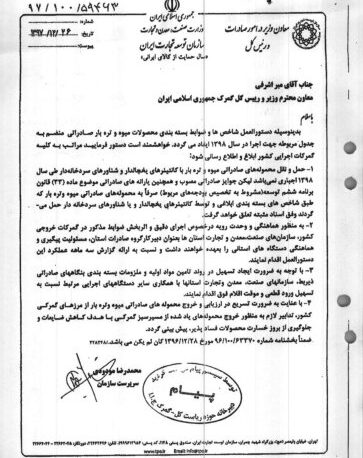 ۹۷/۱۰۰/۵۹۴۶۳
شماره:
۱۳۹۷/۱۲/۲۶
تاریخ:
پیوست:
جمهوری اسلامی ایران
وزارت صنعت، معدن و تجارت
سازمان توسعه تجارت ایران
«سال حمایت از کالای ایرانی»
معاون وزیر در امور صادرات
و رئیس کل
جناب آقای میر اشرفی
معاون محترم وزیر و رییس کل گمرک جمهوری اسلامی ایران
با سلام
بدینوسیله دستورالعمل شاخص ها و ضوابط بسته بندی محصولات میوه و تره بار صادراتی منضم به
جدول مربوطه جهت اجرا در سال ۱۳۹۸ ایفاد می گردد. خواهشمند است دستور فرمایید مراتب به کلیه
گمرکات اجرایی کشور ابلاغ و اطلاع رسانی شود:
۱- حمل و نقل محموله‌های صادراتی میوه و تره بار با کانتینرهای یخچالدار و شناورهای سردخانه‌دار طی سال
۱۳۹۸ اجباری نمی‌باشد لیکن جوایز صادراتی مصوب و همچنین یارانه های صادراتی موضوع ماده (۳۳) قانون
برنامه ششم توسعه(مشروط به تخصیص بودجه‌های مربوط) صرفاً به محموله‌های صادراتی میوه وتره بار که
طبق شاخص های بسته بندی ابلاغی و توسط کانتینرهای یخچالدار و یا شناورهای سردخانه دار حمل می-
گردند وفق اسناد مثبته تعلق خواهد گرفت.
۲- به منظور هماهنگی و وحدت رویه درخصوص اجرای دقیق و اثربخش ضوابط مذکور در گمرکات خروجی
کشور، سازمان‌های صنعت،معدن و تجارت استان ها بعنوان دبیرکارگروه صادرات استان، مسئولیت پیگیری و
هماهنگی دستگاه های استانی را بعهده خواهند داشت و نسبت به ارائه گزارش سه ماهه عملکرد این
دستورالعمل اقدام نمایند.
۳- با توجه به ضرورت ایجاد تسهیل در روند تامین مواد اولیه و ملزومات بسته بندی بنگاههای صادراتی
ذیربط، سازمانهای صنعت، معدن وتجارت استانها با همکاری سایر دستگاههای اجرایی مرتبط نسبت به
تسهیل ورود قطعی و موقت اقلام فوق اقدام نمایند.
۴- با عنایت به ضرورت تسریع در ارزیابی و خروج محموله های صادراتی میوه وتره بار از مرزهای گمرکی
کشور، تدابیر لازم به منظور خروج محموله‌های یاد شده از مسیرسبز گمرکی با هدف کاهش ضایعات و
جلوگیری از بروز خسارت محصولات فساد پذیر، پیش بینی گردد.
ضمناً بخشنامه شماره ۹۶/۱۰۰/۶۳۳۷۰ مورخ ۱۳۹۶/۱۲/۲۸ کان لم یکن می باشد.
محمدرضا مودودی
سرپرست سازمان
پیام
دبیرخانه حوزه ریاست کل - گمرک ج.ا.ا